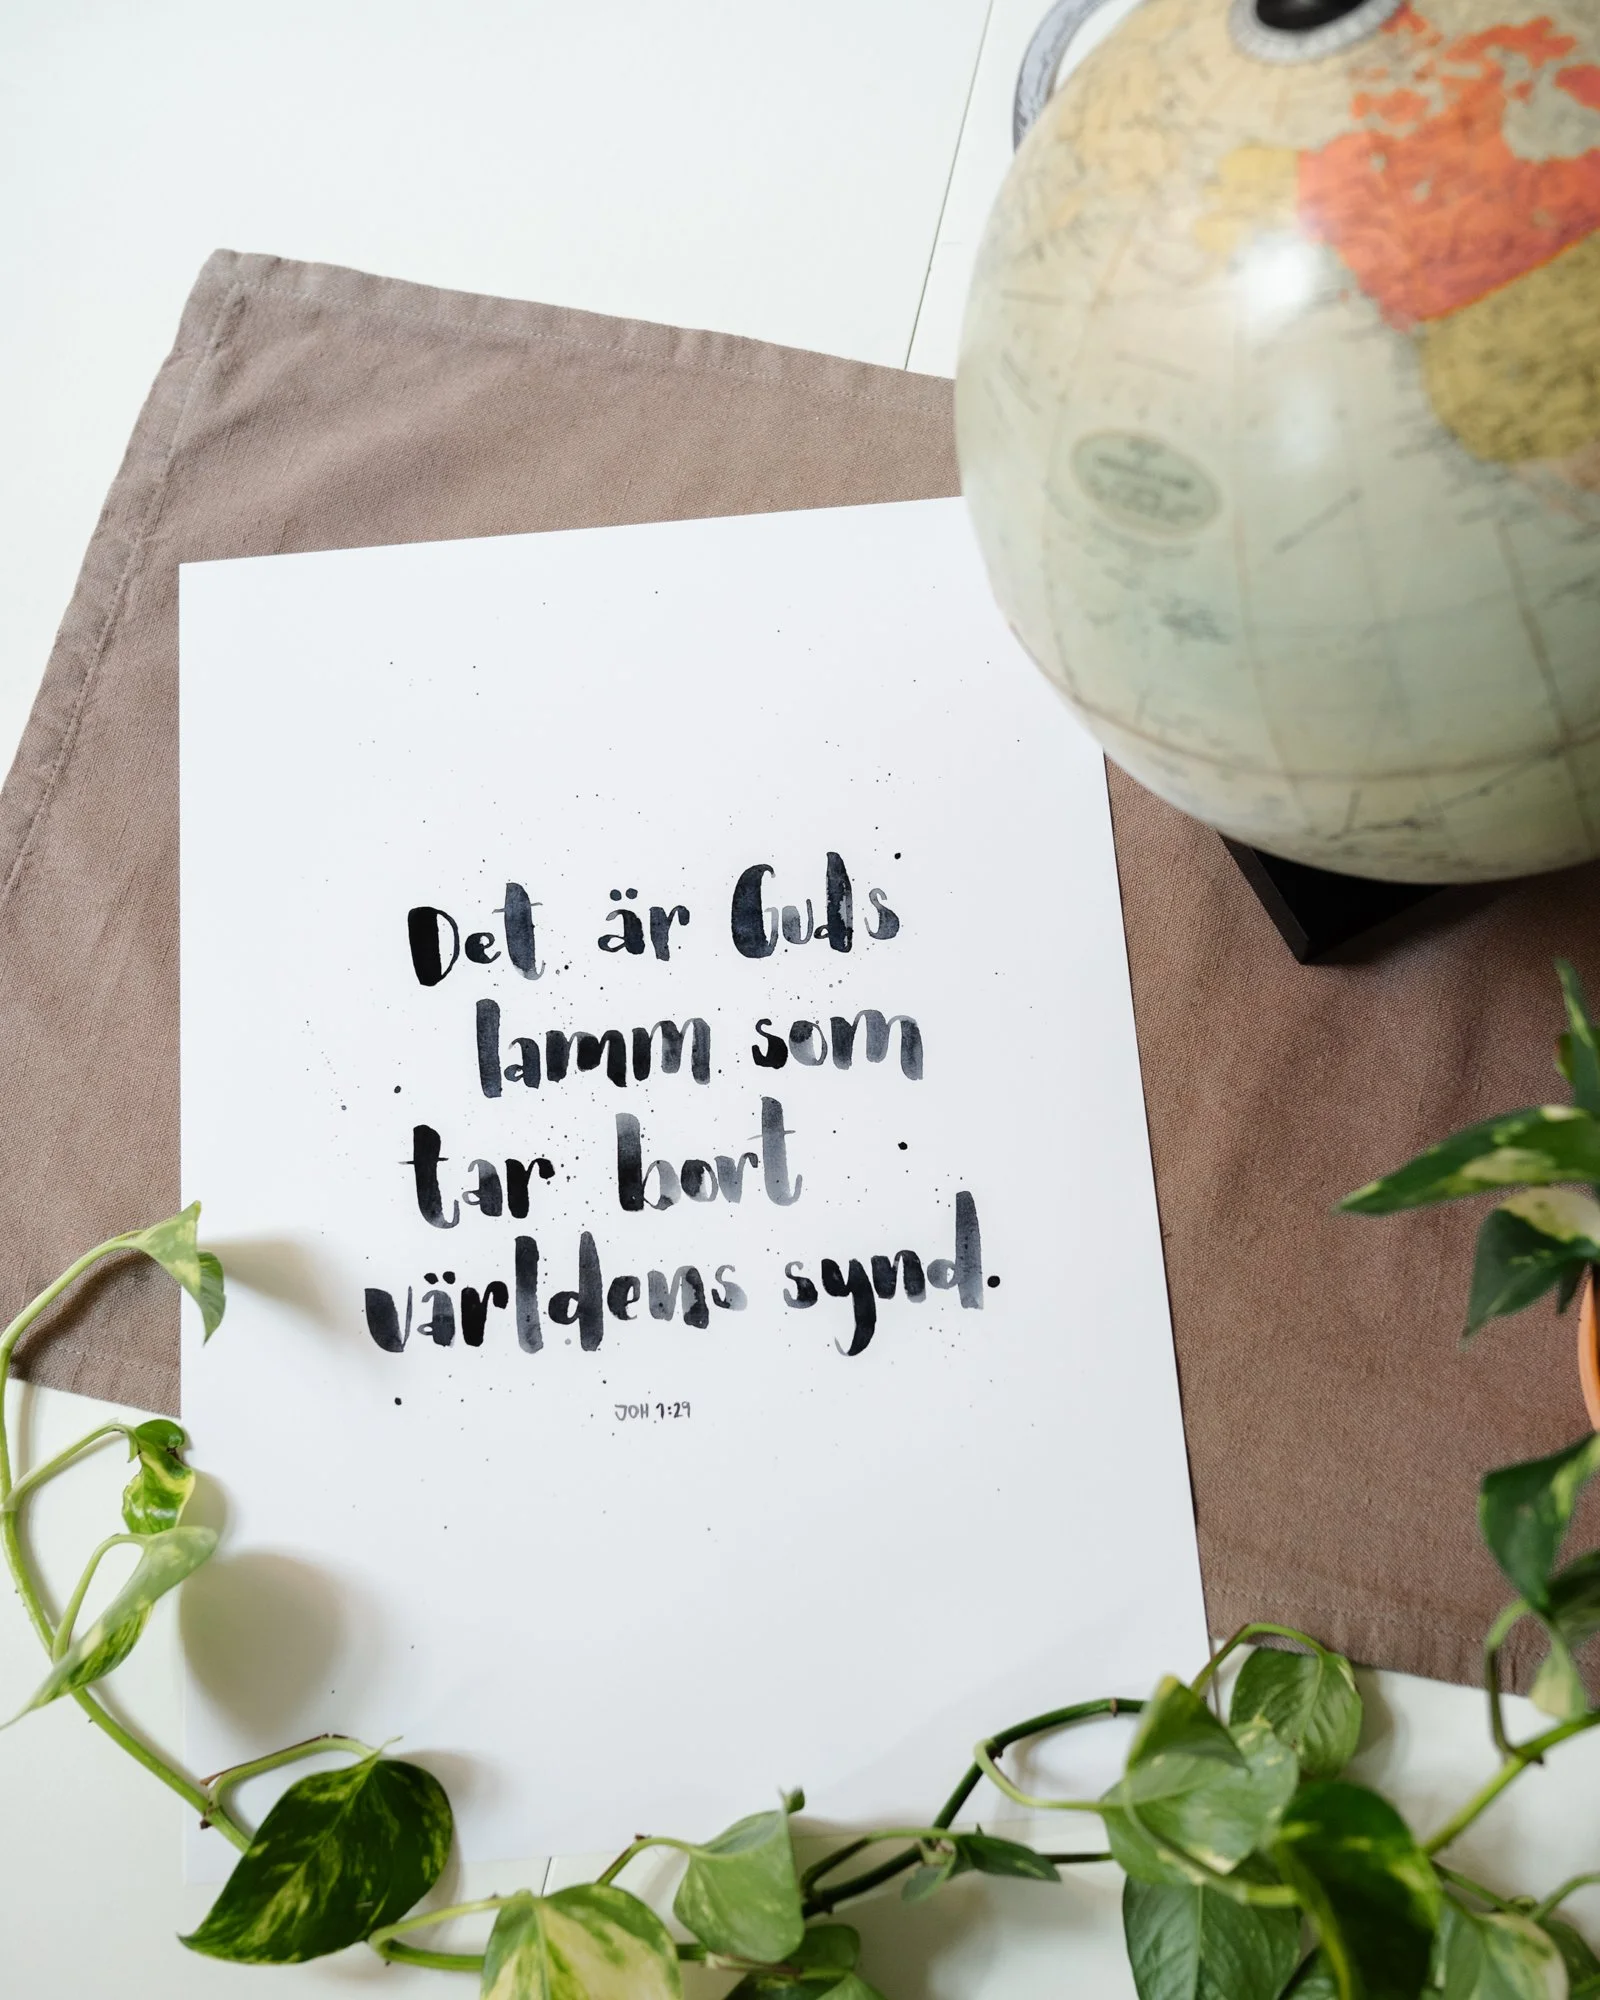 Det är Guds
lamm som
tar bort
världens synd.
JOH 1:29